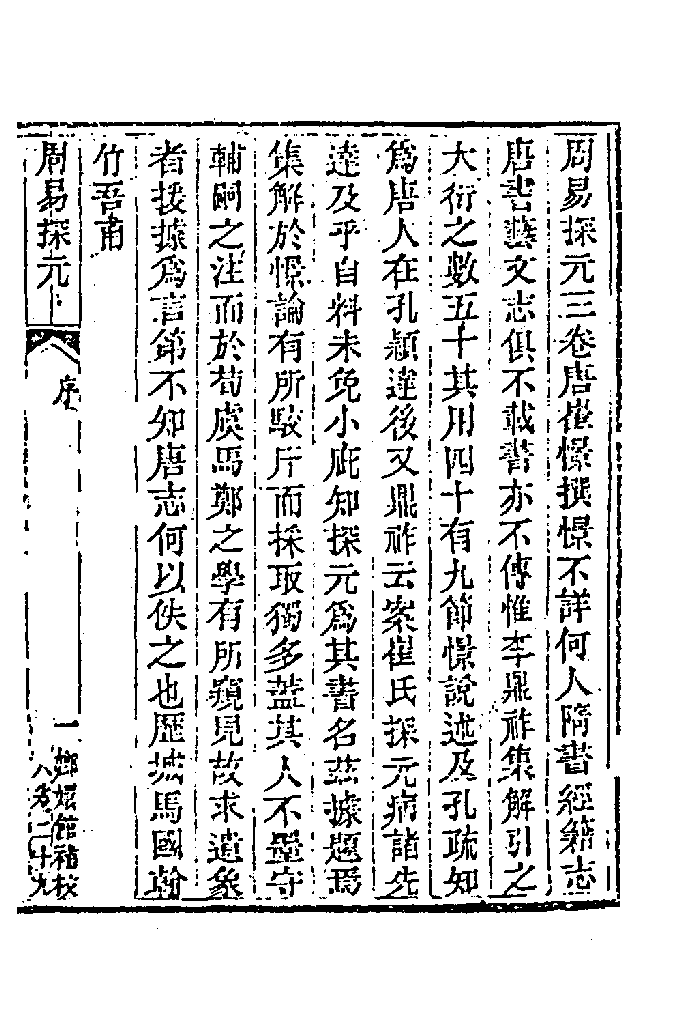 周易探元三卷唐崔憬撰憬不詳何人隋書經籍志
唐書藝文志俱不載書亦不傳惟李鼎祚集解引之
大衍之數五十其用四十有九節憬說述及孔疏知
爲唐人在孔穎達後又鼎祚云案崔氏探元病諸先
達及乎自料未免小疵知探元爲其書名茲據題焉
集解於憬論有所駁斥而採取獨多蓋其人不墨守
輔嗣之注而於荀虞馬鄭之學有所窺見故求遺象
者援據爲言第不知唐志何以佚之也歷城馬國翰
竹吾甫
周易探元
序
一
嫏嬛館補校